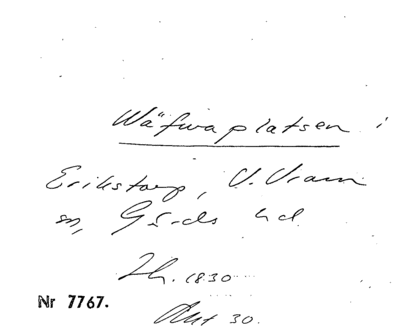 Wäfwaplatsen i
Erikstorp, V. Vram
sn, Gärds hd
Th. 1830
Nr 7767.
Ant 30.